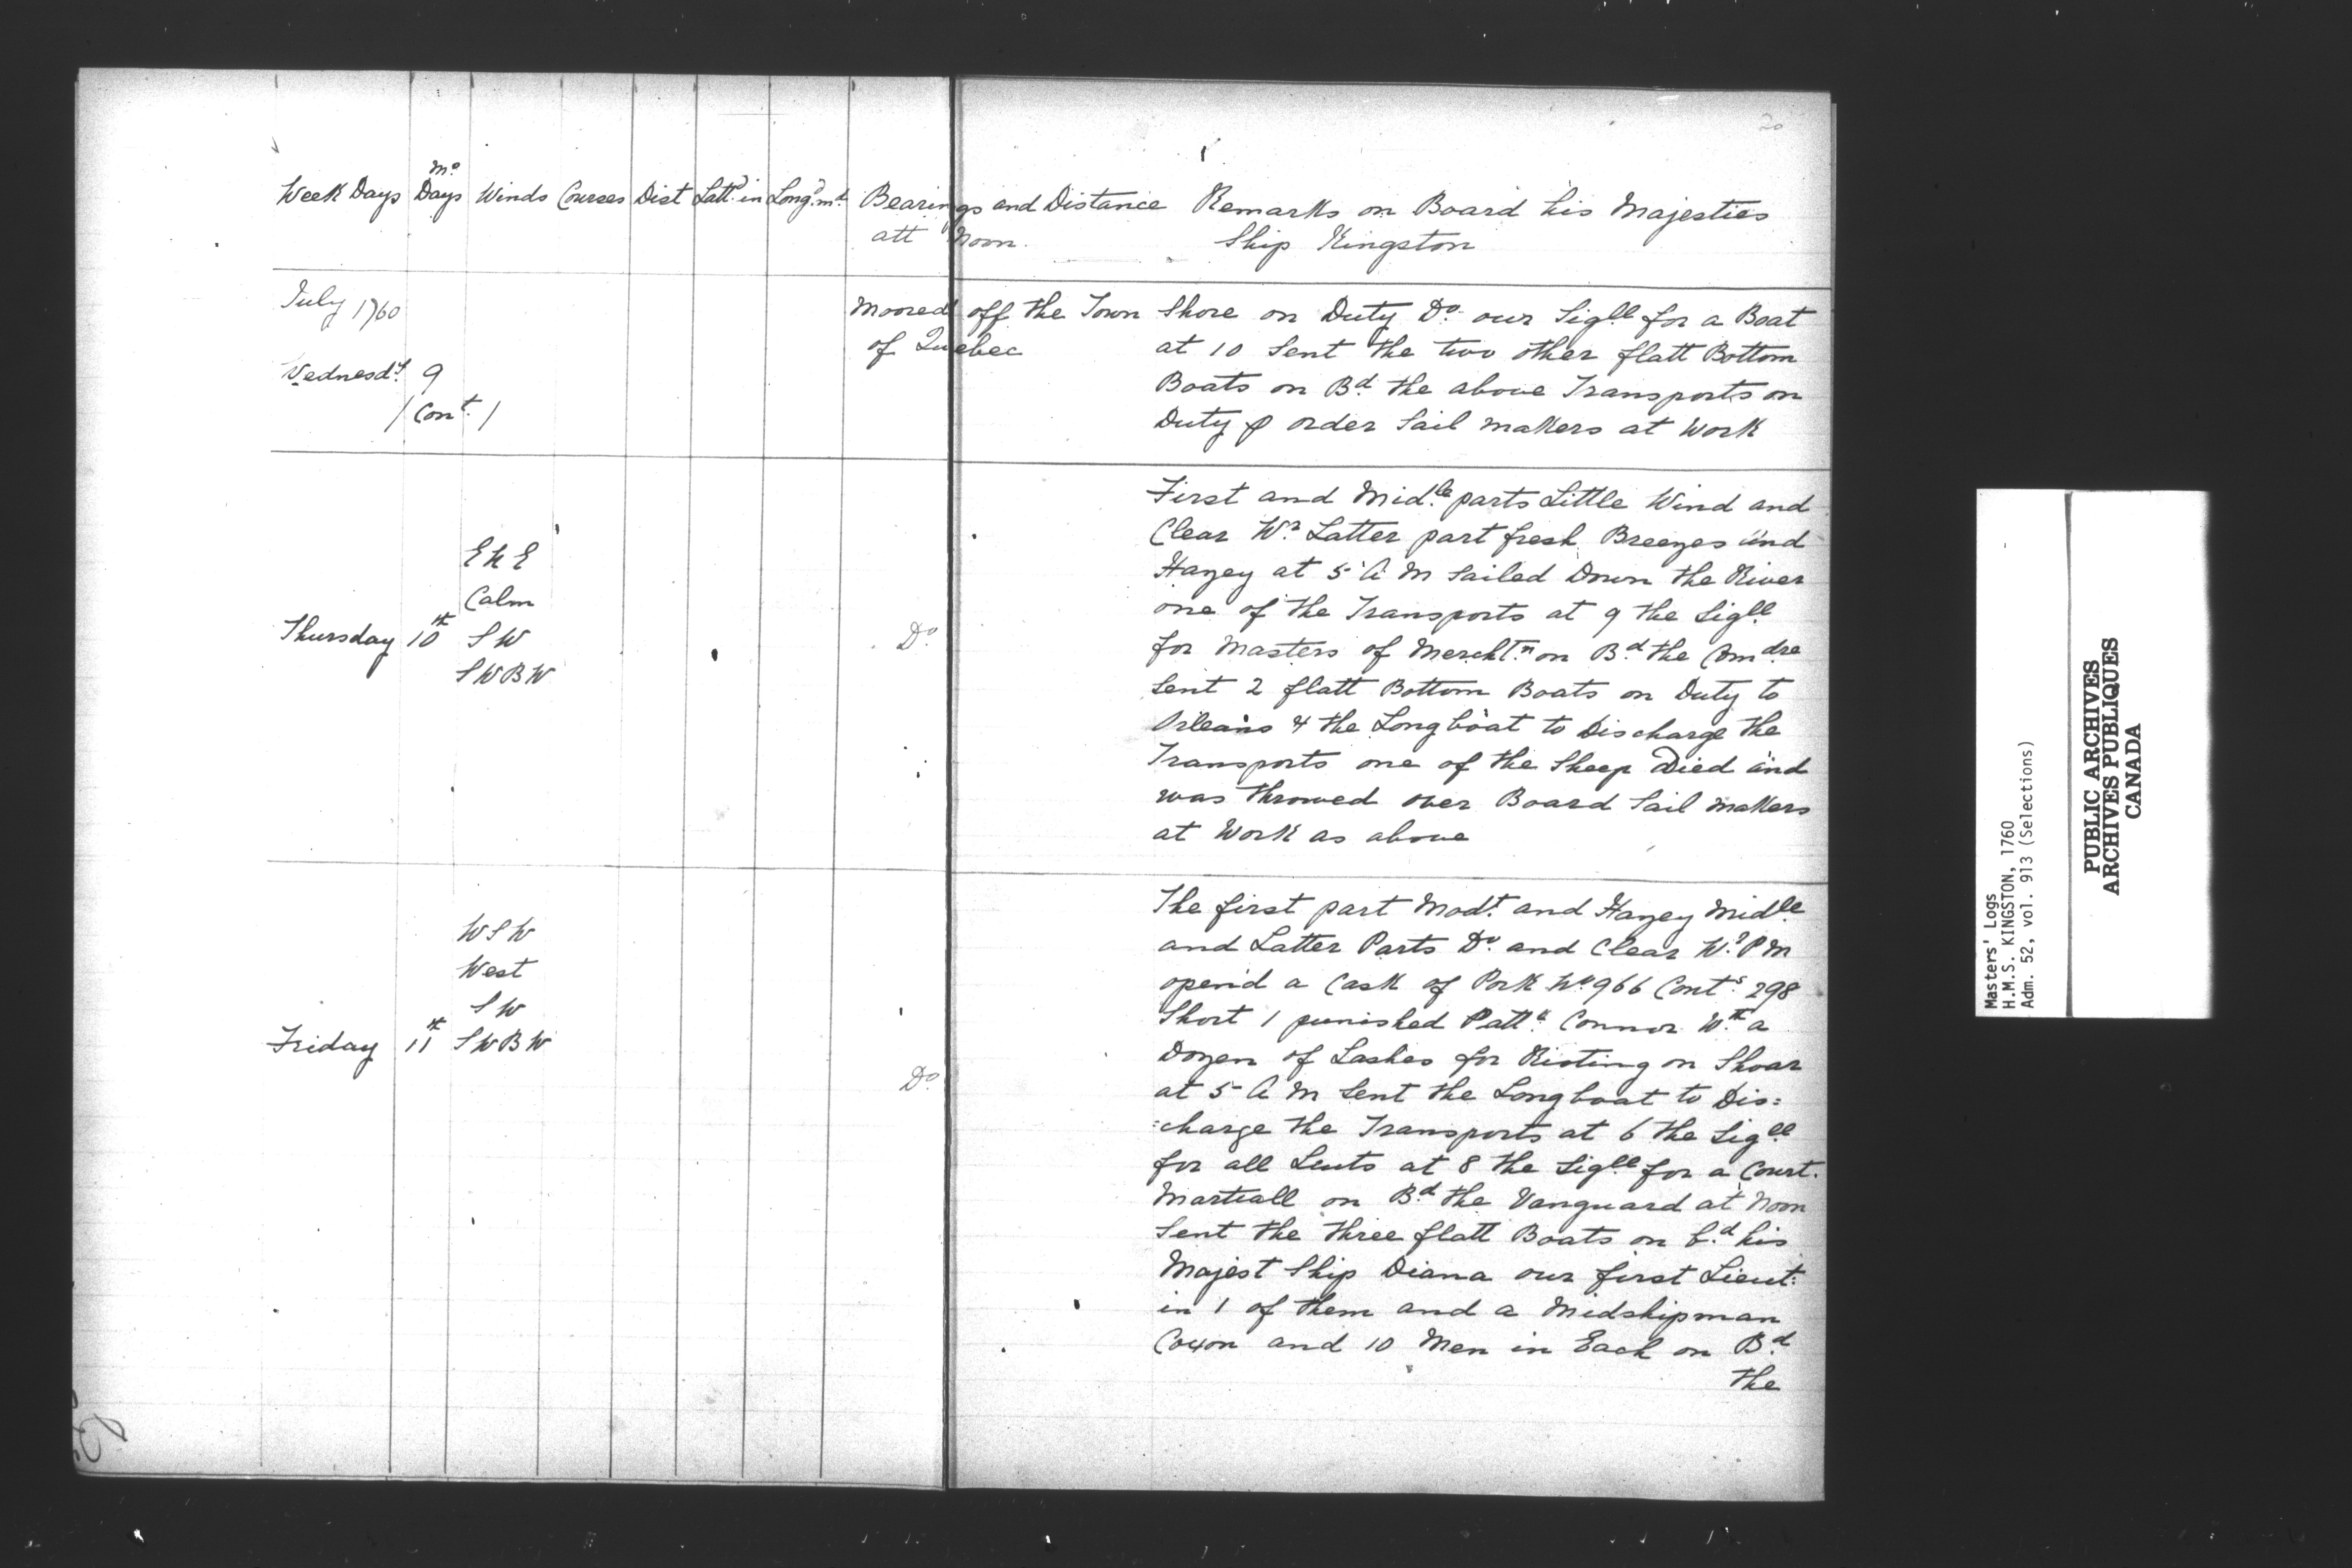 20
Week Days Mo Days Winds Courses Dist Lattd in Longd mt Bearings and Distance att Noon.
Remarks on Board his Majesties
Ship Kingston
July 1760
Wednesdy 9
/ Cont /
Moored off the Town
of Quebec
Shore on Duty Do our Sigll for a Boat
at 10 Sent the two other flatt Bottom
Boats on Bd the above Transports on
Duty p order Sail makers at Work
Thursday 10th
E N E
Calm
S W
S W B W
Do
First and Midle parts Little Wind and
Clear Wr Latter part fresh Breezes and
Hazey at 5 A M Sailed Down the River
one of the Transports at 9 the Sigll
for Masters of Merchtn on Bd the Comdre
Sent 2 flatt Bottom Boats on Duty to
Orleans & the Longboat to Discharge the
Transports one of the Sheep Died and
was throwed over Board Sail makers
at Work as above
Friday 11th
W S W
West
S W
S W B W
Do
The first part Modt and Hazey Midle
and Latter Parts Do and Clear Wr P M
open'd a Cask of Pork No 966 Conts 298
Short 1 punished Pattk Connor Wth a
Dozen of Lashes for Rioting on Shoar
at 5 A M Sent the Longboat to Dis:
:charge the Transports at 6 the Sigll
for all Leuts at 8 the Sigll for a Court.
Martiall on Bd the Vanguard at Noon
Sent the three flatt Boats on bd his
Majest Ship Diana our first Lieut:
in 1 of them and a Midshipman
Coxon and 10 Men in Each on Bd
the
Masters' Logs
H.M.S. KINGSTON, 1760
Adm. 52, vol. 913 (Selections)
PUBLIC ARCHIVES
ARCHIVES PUBLIQUES
CANADA